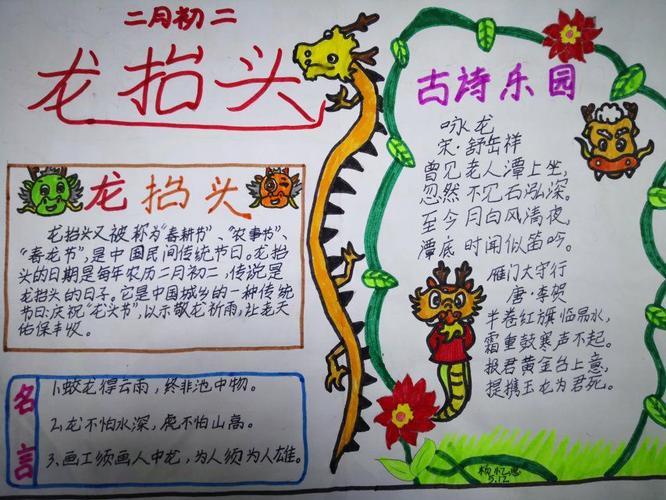 二月初二
龙抬头
龙抬头
龙抬头又被称为“春耕节”、“农事节”、
“春龙节”，是中国民间传统节日。龙抬
头的日期是每年农历二月初二，传说是
龙抬头的日子。它是中国城乡的一种传统
节日，庆祝“龙头节”，以示敬龙祈雨，让老天
佑保丰收。
名言
1.蛟龙得云雨，终非池中物。
2.龙不怕水深，虎不怕山高。
3.画工须画人中龙，为人须为人雄。
古诗乐园
咏龙
宋·舒岳祥
曾见老人潭上坐，
忽然不见石泓深。
至今月白风清夜，
潭底时闻似笛吟。
雁门太守行
唐·李贺
半卷红旗临易水，
霜重鼓寒声不起。
报君黄金台上意，
提携玉龙为君死。
5.12